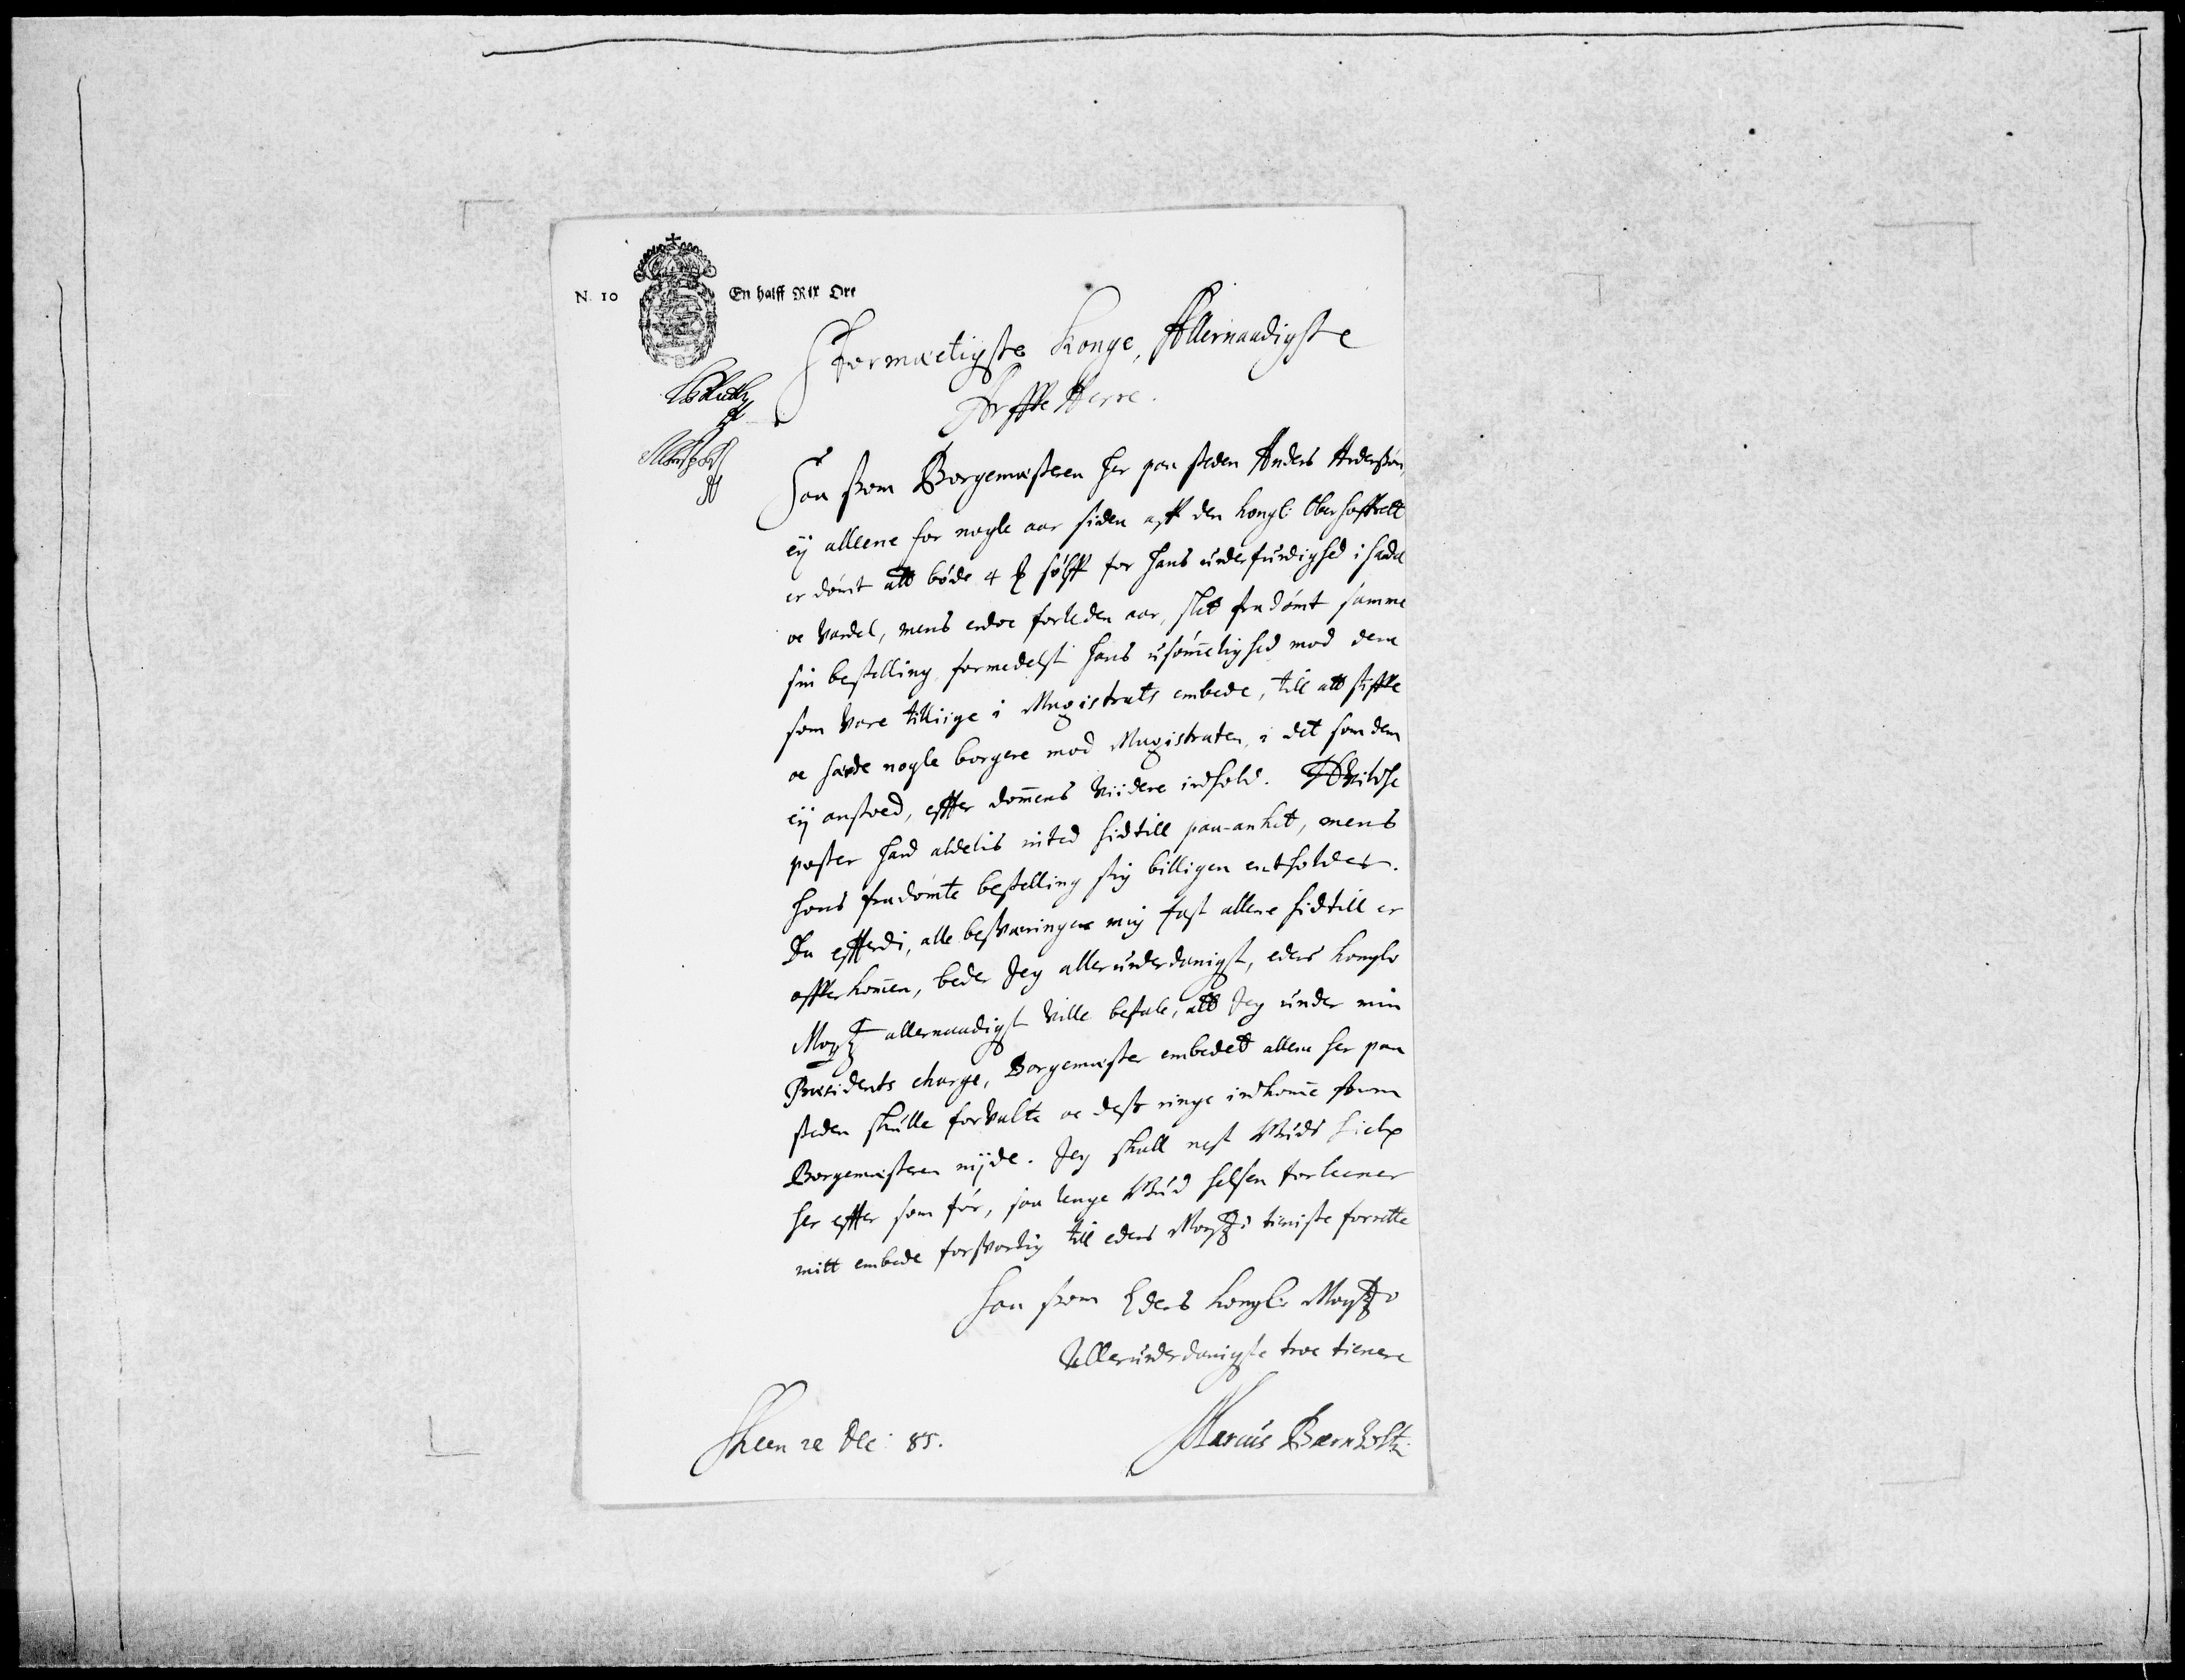 N. 10
En halff Rix Ort
Stormæctigste Konge, Allernaadigste
Arffve Herre.
Saa som Borgemesteren her paa steden Anders Andersøn,
eÿ alleene for nogle aar siden aff den kongl: Oberhoffrett
er dømt att bøde 4 sølff for hans underfundighed i handel
oc vandel, mens endoc forleden aar, slet fradømt samme
sin bestelling formedelst hans usømmelighed mod dem
som vare tilliige i Magistrats embede, till att stiffte
oc nogle borgere mod Magistraten, i det som dem
eÿ anstoed, effter dommens viidere indhold. Hvilche
poster hand aldelis inted hidtill paa-anket, mens
hans fradømte bestelling sig billigen entholder.
Da efftterdi, alle besværinger mig fast allene hidtill er
offverkommen, beder Jeg allerunderdanigst, eders kongl:
Mayst allernaadigst ville befale, att Jeg under min
Præsidents charge, Borgemester embedet allene her paa
steden skulle forvalte oc dess ringe indkomme som
Borgemesteren nÿde. Jeg skall nest Guds hielp
her effter som før, saa lenge Gud helsen forleener
mitt embede forsvarlig till eders Mayst: tieniste forrette
Saa som Eders kongl: Mayst:
Allerunderdanigste troe tienere
Skeen 22 Dec: 85.
Marcus Bærnholtz